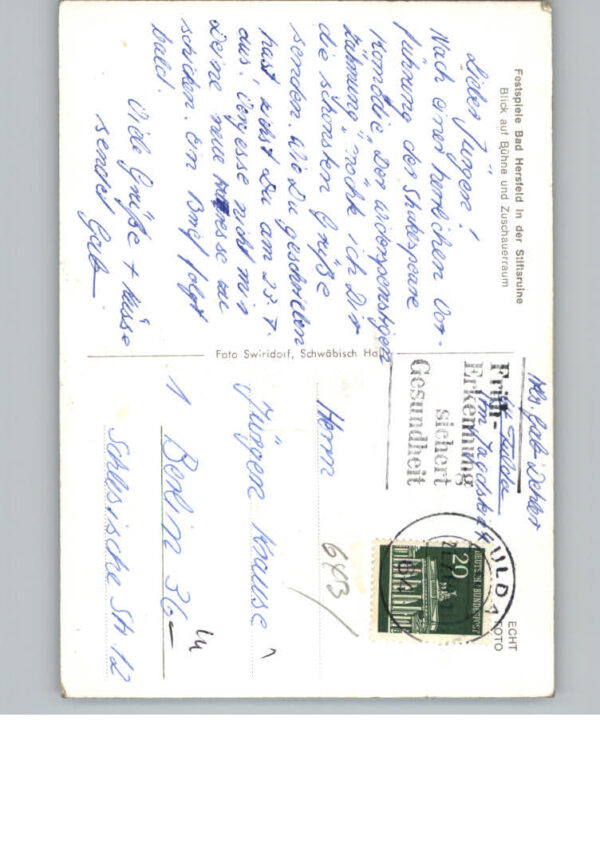 Festspiele Bad Hersfeld in der Stiftsruine
Blick auf Bühne und Zuschauerraum
Lieber Jürgen!
Nach einer herrlichen Vor-
führung der Shakespeare
Komödie „Der widerspenstigen
Zähmung" möchte ich Dir
die schönsten Grüße
senden. Wie Du geschrieben
hast ziehst Du am 23.7.
aus. Vergesse nicht mir
Deine neue Adresse zu
schicken. Ein Brief folgt
bald.
Viele Grüße + Küsse
sendet Gabi
Foto Swiridorf, Schwäbisch Hall
Abs. Gabi Dehler
Fulda
Im Jagdstein
Früh-
Erkennung
sichert
Gesundheit
FULDA 1
20
DEUTSCHE BUNDESPOST
ECHT
FOTO
Herrn
Jürgen Krause
1 Berlin 36
Schlesische Str 12
643/